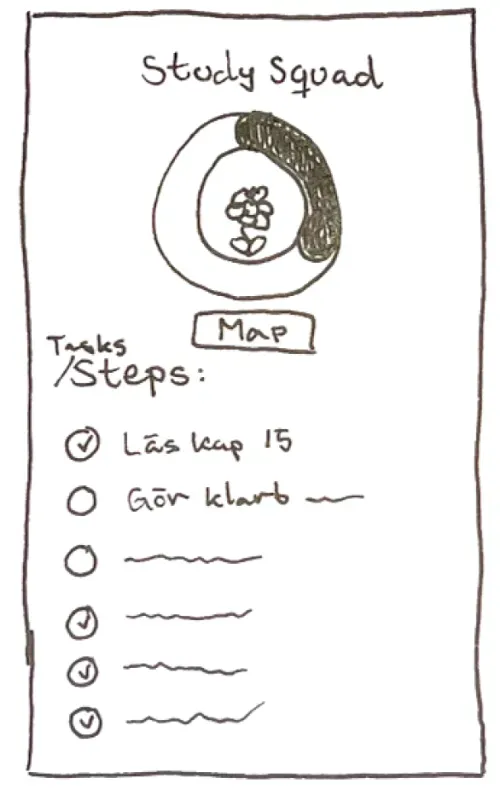 Study Squad
Map
Tasks
/Steps:
Läs kap 15
Gör klart